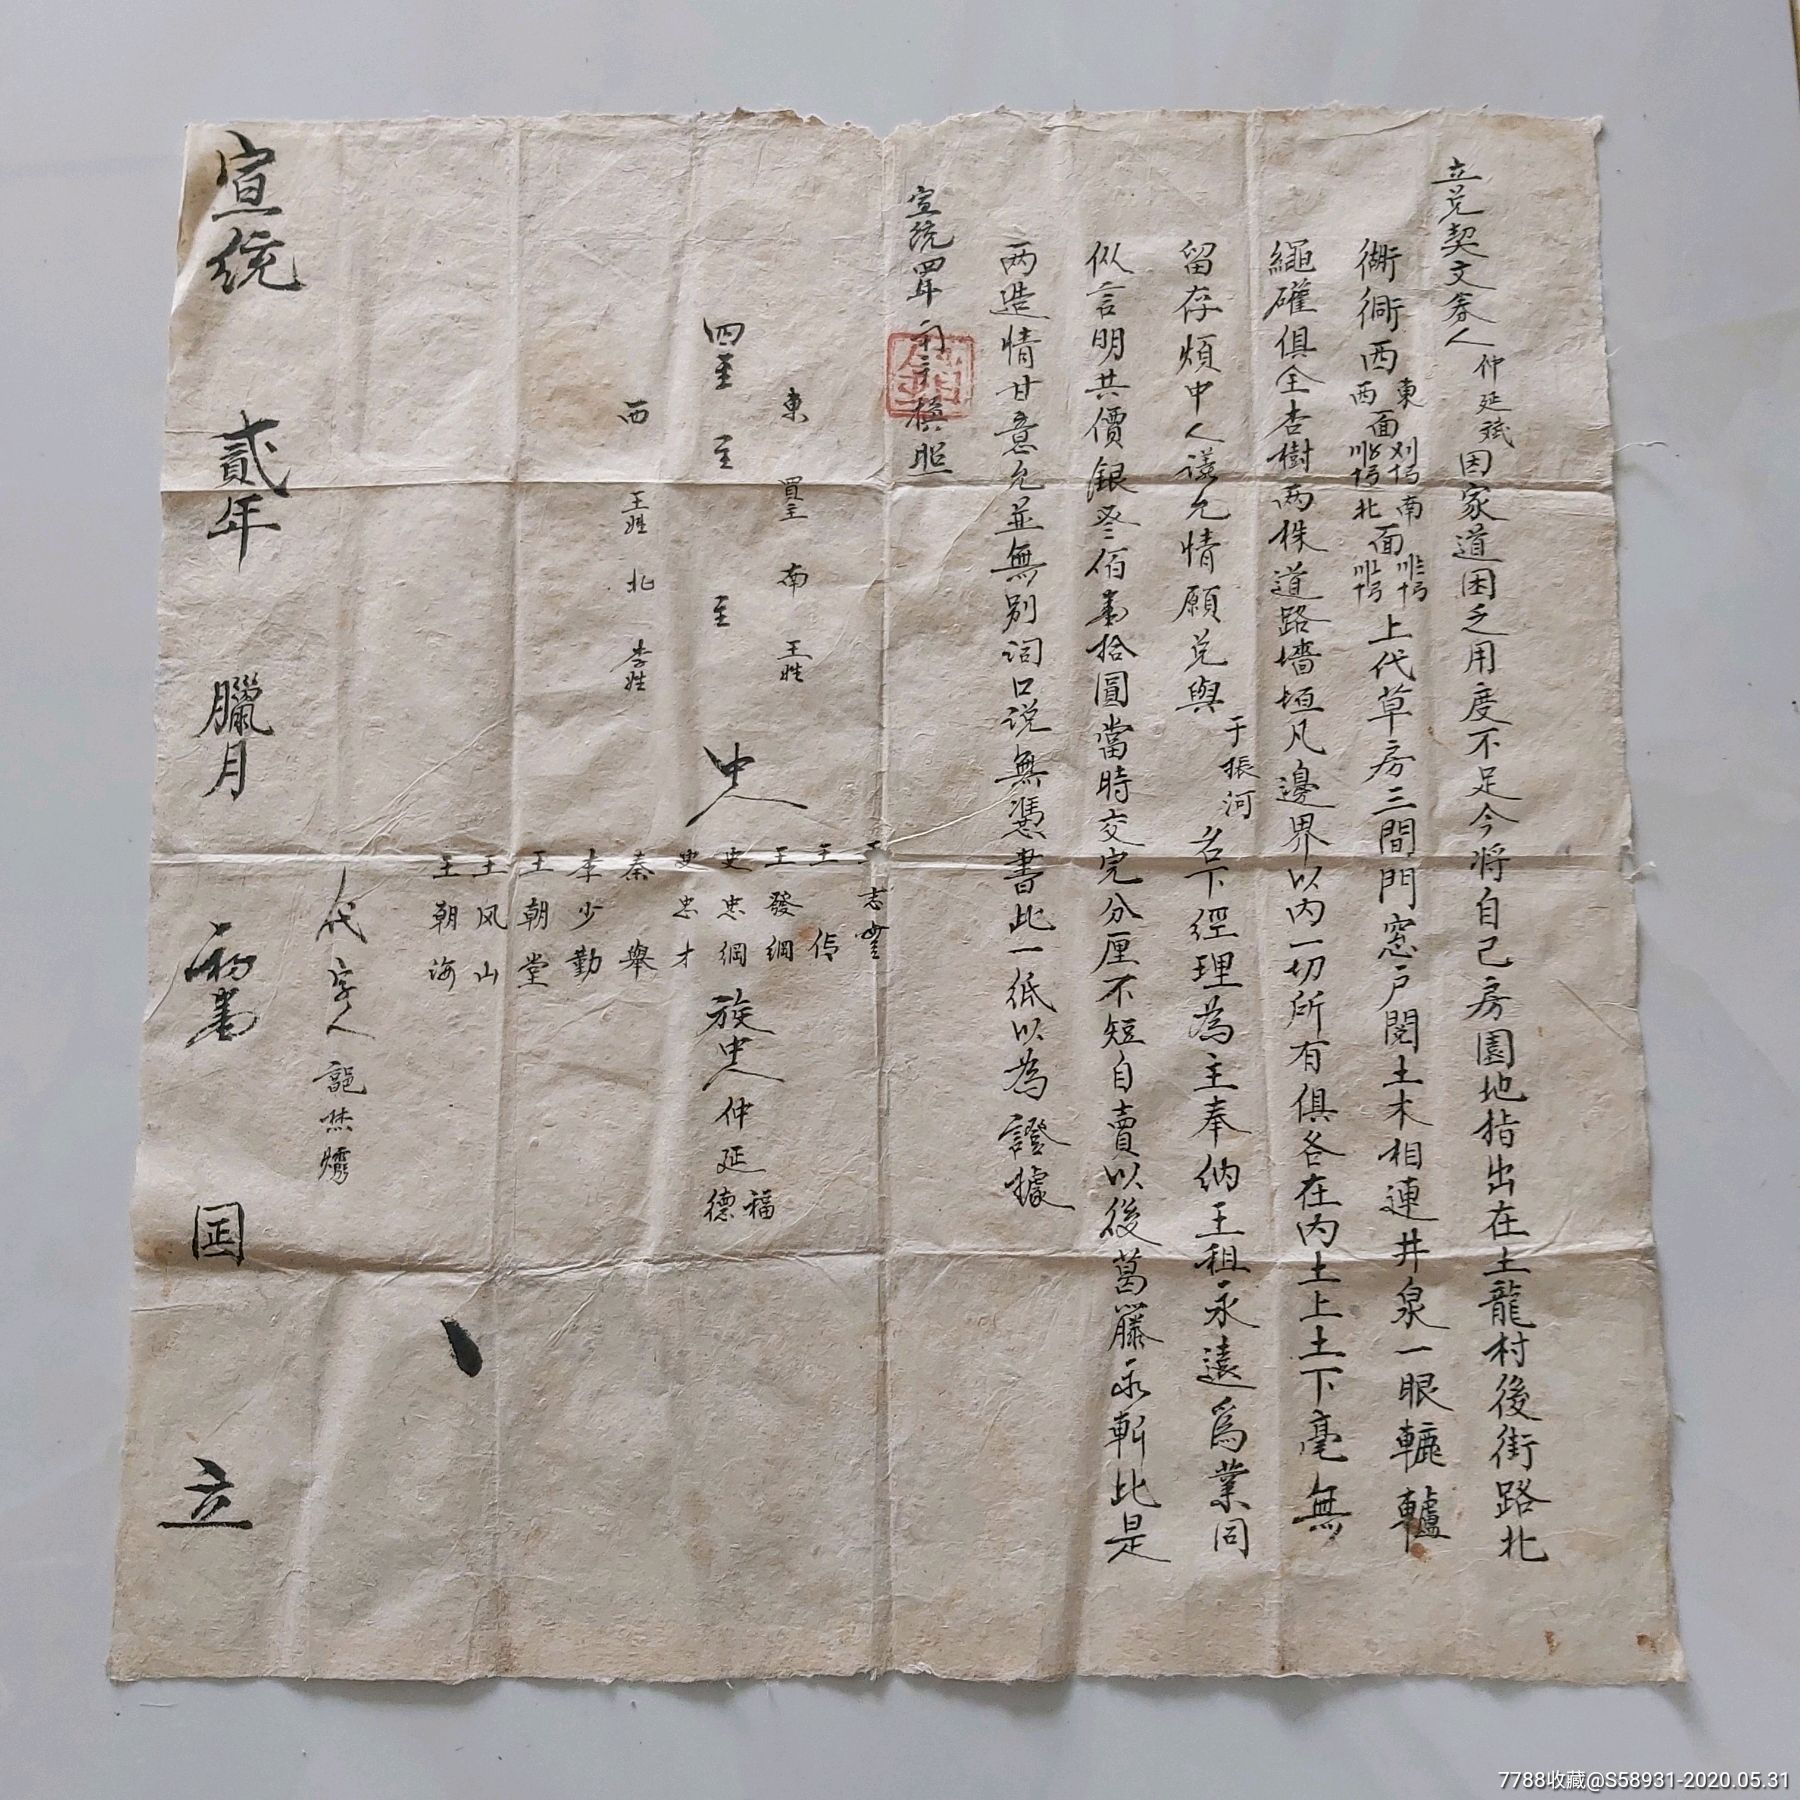 立兑契文券人仲延斌因家道困乏用度不足今將自己房園地指出在土龍村後街路北
衚衕西東西面南北面上代草房三間門窓户閣土木相連井泉一眼轆轤
繩礶俱全杏樹两株道路墻垣凡邊界以内一切所有俱各在内土上土下毫無
留存煩中人議允情願兑與于振河名下經理為主奉纳王租永遠為業同
似言明共價銀叁佰壹拾圓當時交完分厘不短自賣以後葛籐永斬此是
两造情甘意允並無别词口说無憑書此一纸以為證據
宣統四年
四至
東至買主南至王姓
西至王姓北至李姓
中人
王志
王
王發綱
史忠綱
史忠才
秦舉
李少勤
王朝堂
王风山
王朝海
族中人仲延福德
代字人
宣統贰年臘月初壹囸立
7788收藏@S58931-2020.05.31